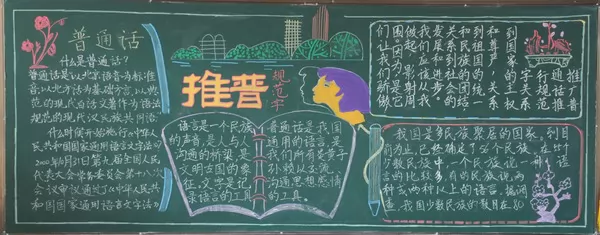 普通话
什么是普通话?
普通话是以北京语音为标准
音,以北方话为基础方言,以典
范的现代白话文著作为语法
规范的现代汉民族共同语。
什么时候开始施行《中华人
民共和国国家通用语言文字法》?
2000年10月31日第九届全国人民
代表大会常务委员会第十八次
会议审议通过了《中华人民共
和国国家通用语言文字法》
推普
规范字
语言是一个民族
的声音,是人与人
沟通的桥梁,是
文明古国的象
征,文字是记
录语言的工具
普通话是我国
通用的语言,是
我们所有炎黄子
孙赖以交流,
沟通思想感情
的工具。
推广普
通话推
行规范
字关系
到国家的主权
和尊严,关系
到祖国的统一
和民族的团结
关系到社会的
我们应该进步
做起从
因为
我国是多民族聚居的国家,到目
前为止,已经确定了56个民族,在55个
少数民族中,一个民族说一种语
言的比较多,有的民族说两
种或两种以上的语言,据调
查,我国少数民族的数目在80